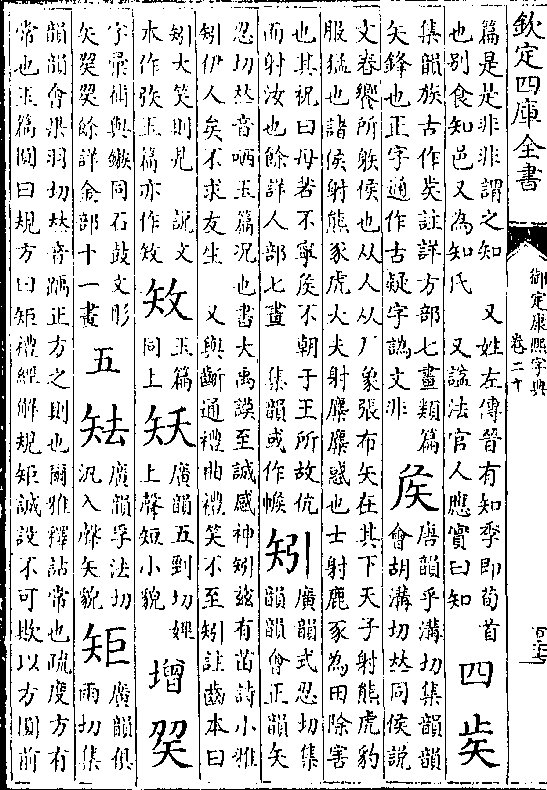 欽定四庫全書
御定康熙字典
卷二十
篇是是非非謂之知 又姓左傳晉有知季即荀首
也别食知邑又為知氏 又諡法官人應實曰知
四
集韻族古作矦註詳方部七畫類篇
矢鋒也正字通作古疑字譌文非
矦
唐韻乎溝切集韻韻
會胡溝切𠀤同侯說
文春饗所躲侯也从人从厂象張布矢在其下天子射熊虎豹
服猛也諸侯射熊豕虎大夫射麋麋惑也士射鹿豕為田除害
也其祝曰毋若不寧矦不朝于王所故伉
而射汝也餘詳人部七畫 集韻或作帿
矧
廣韻式忍切集
韻韻會正韻矢
忍切𠀤音哂玉篇况也書大禹謨至諴感神矧玆有苗詩小雅
矧伊人矣不求友生 又與齗通禮曲禮笑不至矧註齒本曰
矧大笑則見 說文
本作 玉篇亦作矤
矤
玉篇
同上
廣韻五到切
上聲短小貌
增
字彙補與鏃同石鼓文彤
矢 餘詳金部十一畫
五
廣韻孚法切
汎入聲矢貌
矩
廣韻俱
雨切集
韻韻會果羽切𠀤音踽正方之則也爾雅釋詁常也疏度方有
常也玉篇圓曰規方曰矩禮經解規矩誠設不可欺以方圓前